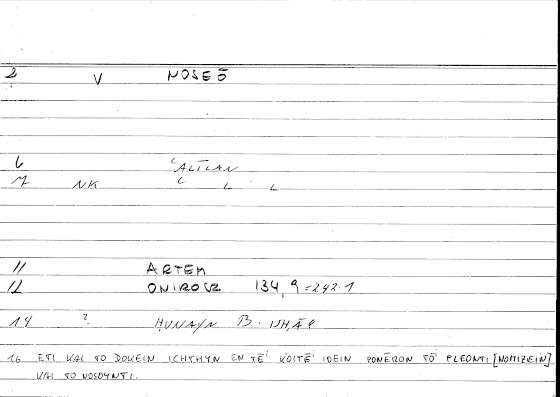 2 V NOSEŌ
6 ʿALĪLAN
7 NK ʿ L L
11 ARTEM
12 ONIROCR 134,9=242.1
14 ? ḤUNAYN B. ISḤĀQ
16 ETI KAI TO DOKEIN ICHTHYN EN TĒ KOITĒ IDEIN PONĒRON TŌ PLEONTI [NOMIZEIN]
KAI TO NOSOYNTI.